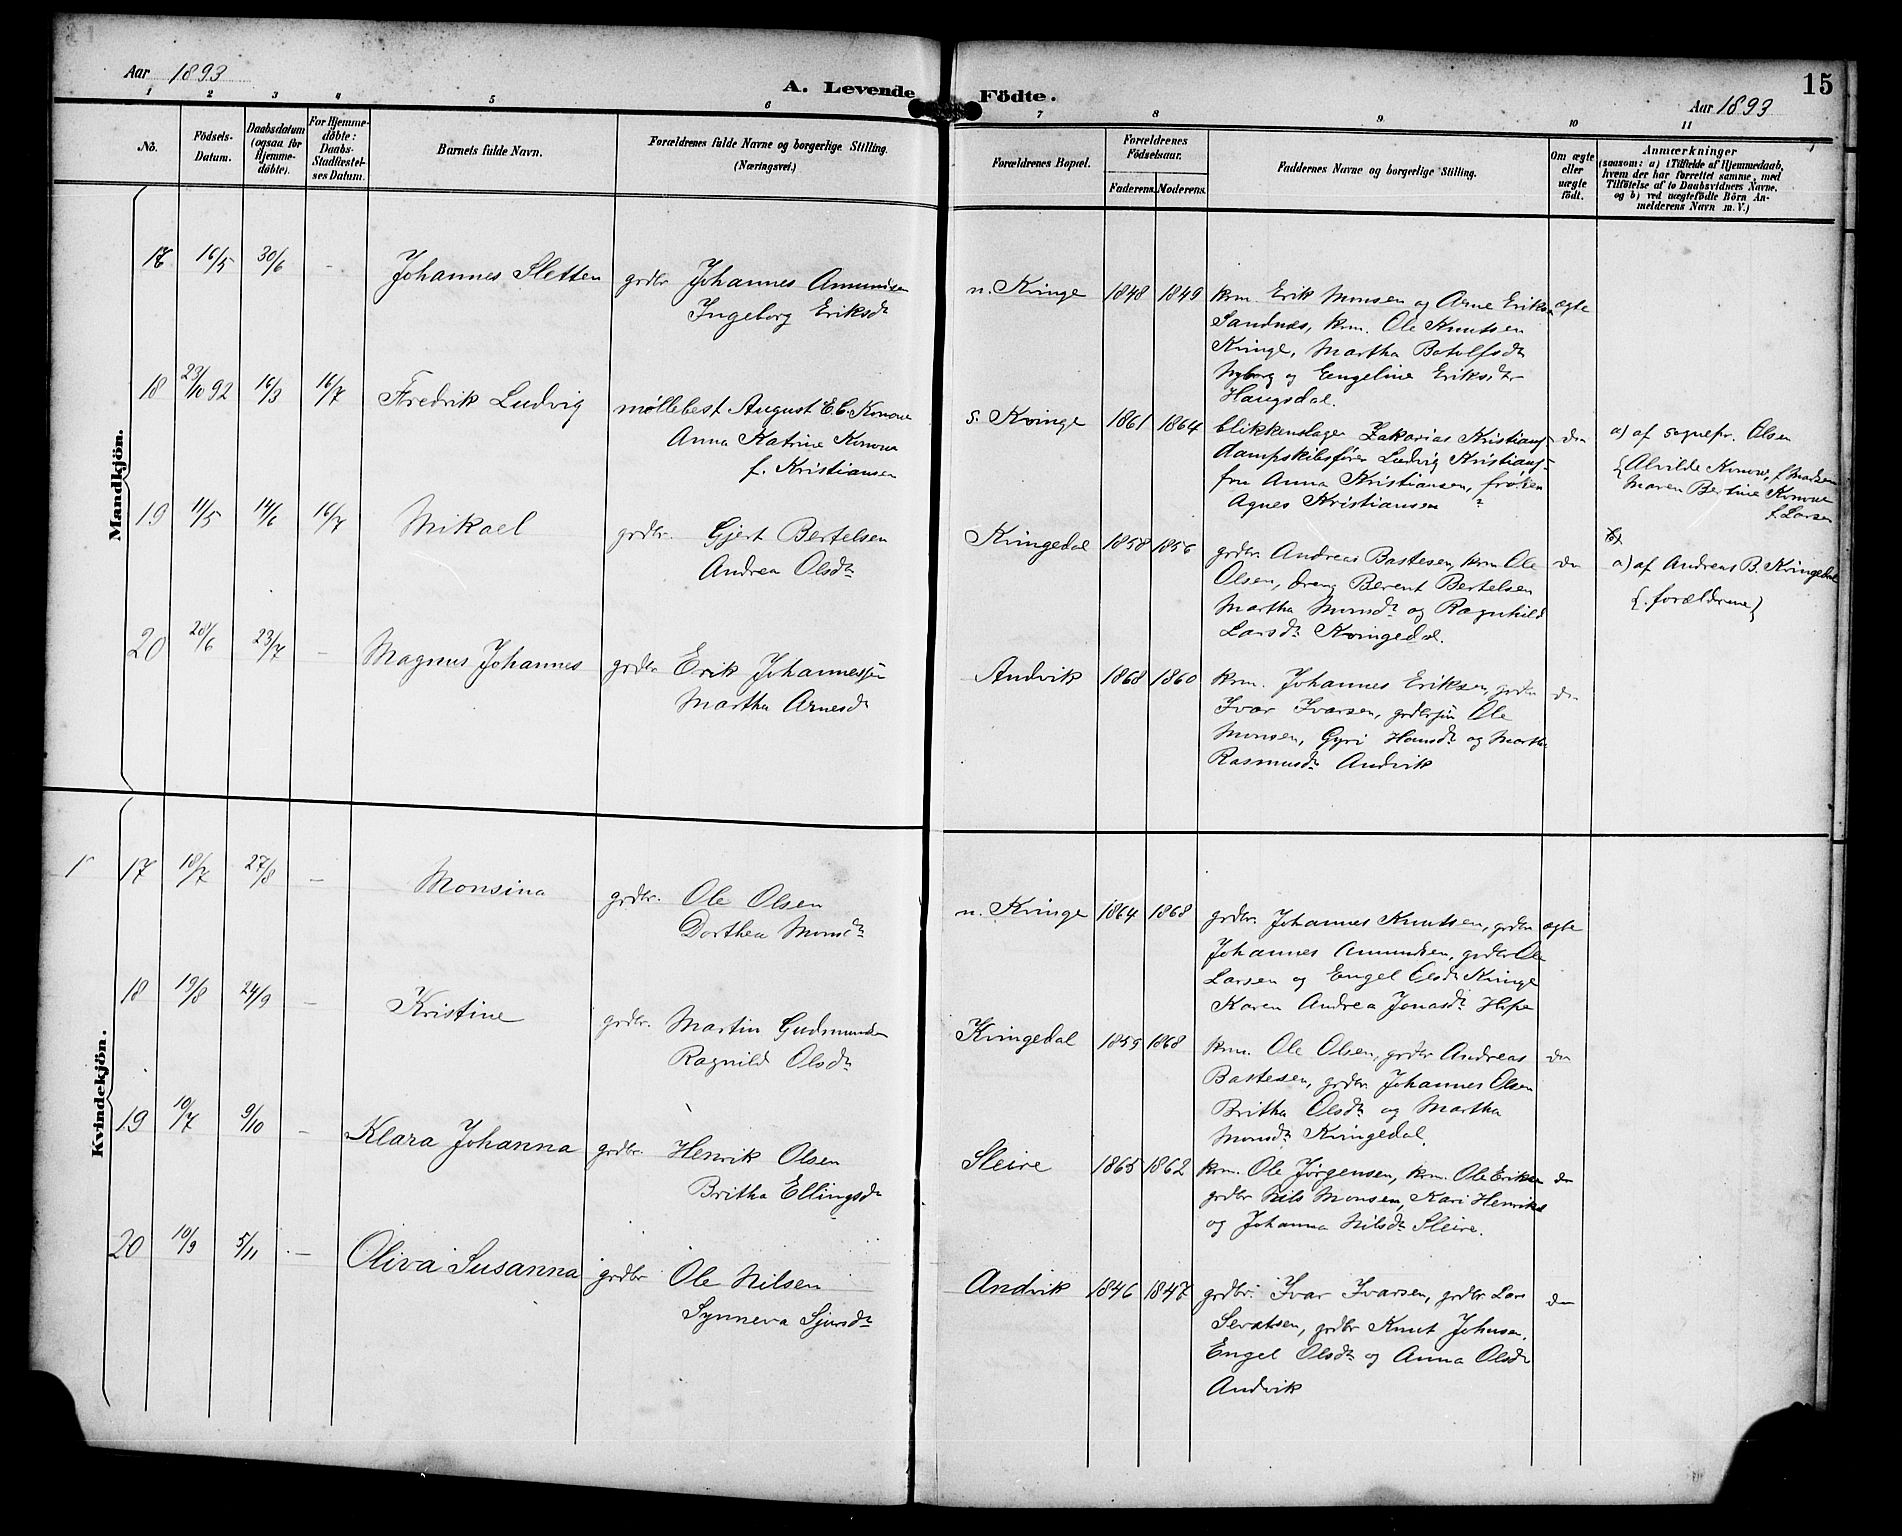 Aar 1893
A. Levende Födte.
15
Aar 1893
1 2 3 4 5 6 7 8 9 10 11
No.
Födsels-Datum.
Daabsdatum (ogsaa for Hjemme-döbte).
For Hjemme-döbte: Daabs-Stadfæstel-ses Datum.
Barnets fulde Navn.
Forældrenes fulde Navne og borgerlige Stilling.
(Næringsvei.)
Forældrenes Bopæl.
Forældrenes Födselsaar.
Faderens. Moderens.
Faddernes Navne og borgerlige Stilling.
Om ægte eller uægte födt.
Anmærkninger
(saasom: a) i Tilfælde af Hjemmedaab,
hvem der har forrettet samme, med
Tilföielse af to Daabsvidners Navne.
og b) ved uægtefödte Börn An-
melderens Navn m. V.)
Mandkjön.
16/5 30/6 - Johannes Sletten grdbr. Johannes Amundsen
Ingeborg Eriksdr
n. Kvinge 1848 1849 krm. Erik Monsen og Arne Eriksen ægte
Sandnæs, krm. Ole Knutsen
Kvinge, Martha Botolfsdr
Nyborg og Engeline Eriksdr
Haugsdal.
18 23/10 92 16/3 16/7 Fredrik Ludvig møllebest August E.C. Konow
Anna Katrine Konow
f. Kristiansen
s. Kvinge 1861 1864 blikkenslager Zakarias Kristians-
dampskibsfører Ludvig Kristians-
fru Anna Kristiansen, frøken
Agnes Kristiansen
do
a) af sognepr. Olsen
{Alvilde Konow, f. Madsen
Maren Bertine Konow
f. Larsen
19 11/5 14/6 16/7 Mikael grdbr. Gjert Bertelsen
Andrea Olsdr
Kvingedal 1858 1856 grdbr Andreas Bastesen, krm Ole
Olsen, dreng Berent Bertelsen
Martha Monsdr og Ragnhild
Larsdr Kvingedal.
do
a) af Andreas B. Kvingedal
{forældrene}
20 20/6 23/7 - Magnus Johannes grdbr Erik Johannessøn
Martha Arnesdr
Andvik 1868 1860 krm. Johannes Eriksen, grdbr
Ivar Ivarsen, grdbrsøn Ole
Monsen, Gyri Hansdr og Martha
Rasmusdr Andvik
do
Kvindekjön.
17 18/7 27/8 - Monsina grdbr. Ole Olsen
Dorthea Monsdr
n. Kvinge 1864 1868 grdbr. Johannes Knutsen, grdbr ægte
Johannes Amundsen, grdbr Ole
Larsen og Engel Olsdr Kvinge
Karen Andrea Jonasdr Hope
18 19/8 24/9 - Kristine grdbr. Martin Gudmundsen
Ragnild Olsdr
Kvingedal 1859 1868 krm. Ole Olsen, grdbr Andreas
Bastesen, grdbr. Johannes Olsen
Britha Olsdr og Martha
Monsdr Kvingedal.
do
19 10/7 9/10 - Klara Johanna grdbr. Henrik Olsen
Britha Ellingsdr
Sleire 1865 1862 krm. Ole Jørgensen, krm. Ole Eriksen do
grdbr Nils Monsen, Kari Henriksd
og Johanna Nilsdr Sleire.
20 10/9 5/11 - Oliva Susanna grdbr Ole Nilsen
Synneva Sjursdr
Andvik 1846 1847 grdbr. Ivar Ivarsen, grdbr Lars
Sevatsen, grdbr Knut Johnsen,
Engel Olsdr og Anna Olsdr
Andvik
do